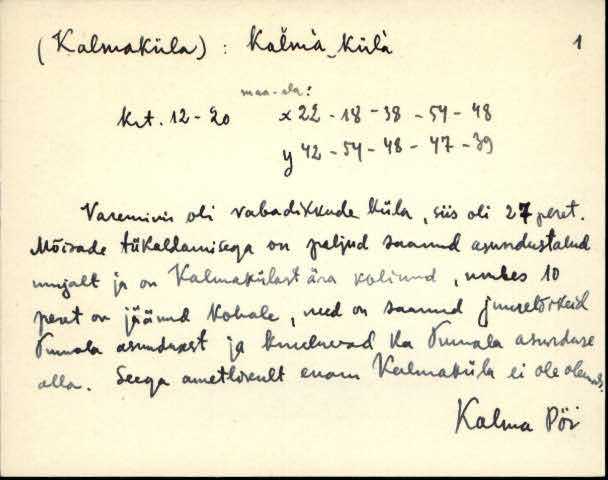 (Kalmaküla) : kàlmà_külà 1
maa-ala:
krt. 12-20 x 22 - 18 - 38 - 54 - 48
y 42 - 54 - 48 - 47 - 39
Varemini oli vabadikkude küla, siis oli 27 peret.
Mõisade tükeldamisega on paljud saanud asundustalud
mujalt ja on Kalmakülast ära kolinud, umbes 10
peret on jäänud kohale, need on saanud juurelõikeid
asundusest ja kuuluvad ka asunduse
alla. Seega ametlikult enam Kalmaküla ei ole olemas.
Kalma Pöi